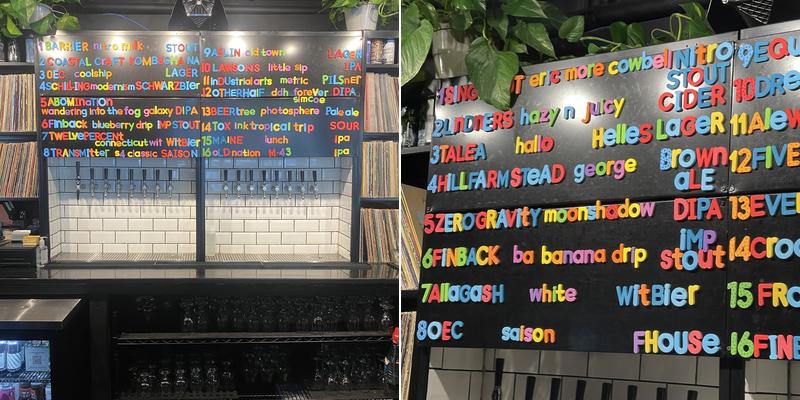 1BARRIER nitro milk STOUT
2COASTAL CRAFT KOMBUCHA NA
3OEC coolship LAGER
4SCHILLING modernism SCHWARZBIER
5ABOMINATION
wandering into the fog galaxy DIPA
6Finback blueberry drip IMP STOUT
7TWELVEPERCENT
connecticut wit WITBIER
8TRANSMITTER s4 classic SAISON
9ASLIN old town LAGER
10LAWSON'S little sip IPA
11INDUSTRIAL arts metric PILSNER
12OTHERHALF ddh forever DIPA
simcoe
13BEERtree photosphere Pale ale
14TOX ink tropical trip SOUR
15MAINE lunch ipa
16old nation M-43 ipa
1SING T eric more cowbell Nitro
STOUT
2LINDNERS hazy n juicy CIDER
3TALEA hallo Helles LAGER
4HILLFARMSTEAD george Brown
aLE
5ZEROGRAVITY moonshadow DIPA
6FINBACK ba banana drip imp
stout
7Allagash white witBier
8OEC saison FHouse
9EQU
10Dre
11Alew
12FIVE
13EVE
14Croo
15 FRO
16FINE